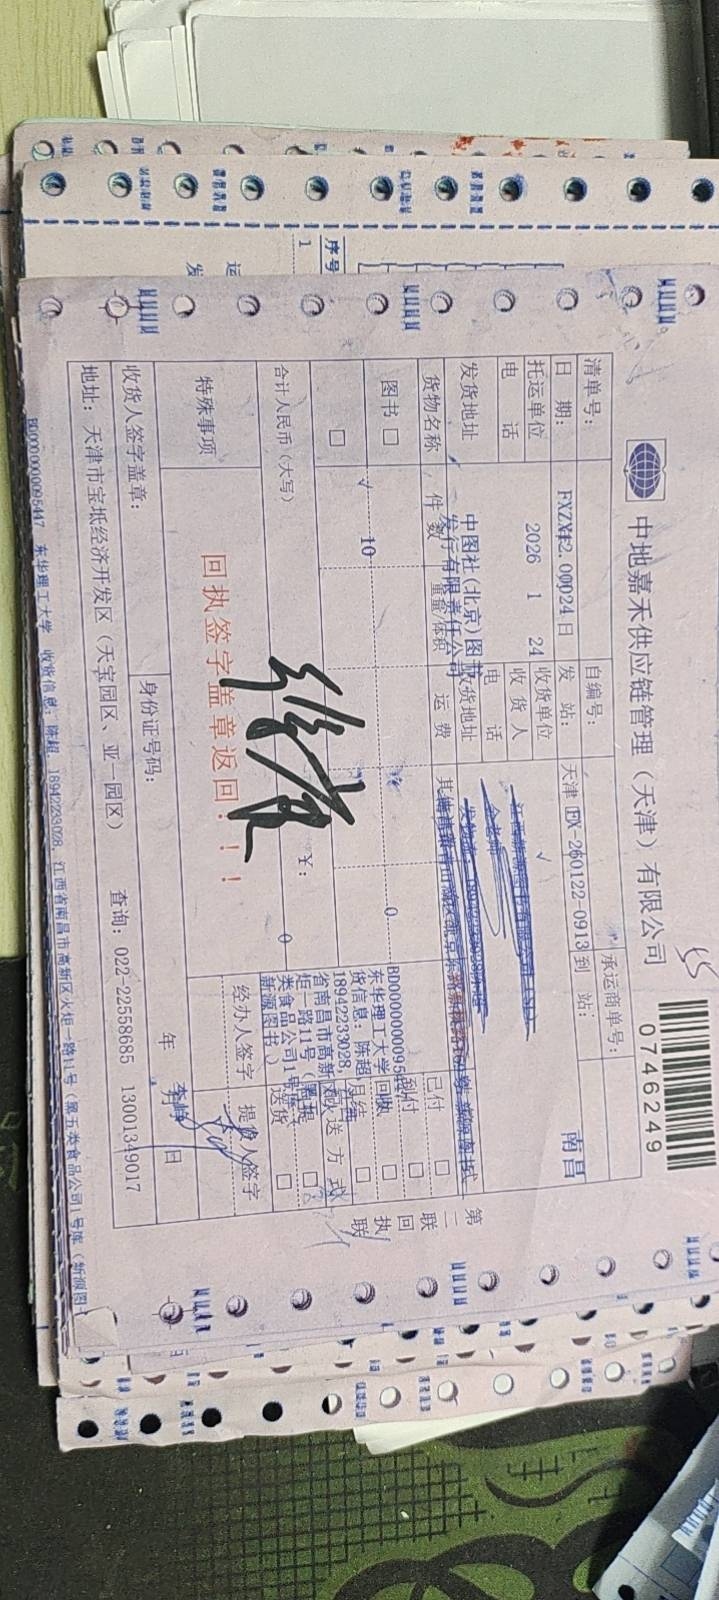 中地嘉禾供应链管理（天津）有限公司
0746249
清单号：
自编号：
承运商单号：
日 期：
2026 1 24日
发 站：
天津
FX-260122-0913
到 站：
南昌
托运单位
中图社(北京)图书
发行有限责任公司
收货单位
电 话
收 货 人
发货地址
电 话
收货地址
货物名称
件 数
重量/体积
运 费
其他
图书 □
√
10
0
已付 □
到付 □
回收 □
月结 □
送 方 式
自提 □
送货 □
东华理工大学
货信息：陈超，
18942233028，江西
省南昌市高新区火
炬一路11号（第五
类食品公司1号库（
新源图书）
合计人民币（大写）
¥：
0
特殊事项
回执签字盖章返回！！！
经办人签字
李峰
提货人签字
收货人签字盖章：
身份证号码：
年 月 日
地址：天津市宝坻经济开发区（天宝园区、亚一园区）
查询：022-22558685 13001349017
第二联 回执联
BD0000000095447 东华理工大学 收货信息：陈超，18942233028，江西省南昌市高新区火炬一路11号（第五类食品公司1号库（新源图
序号
1
运
发